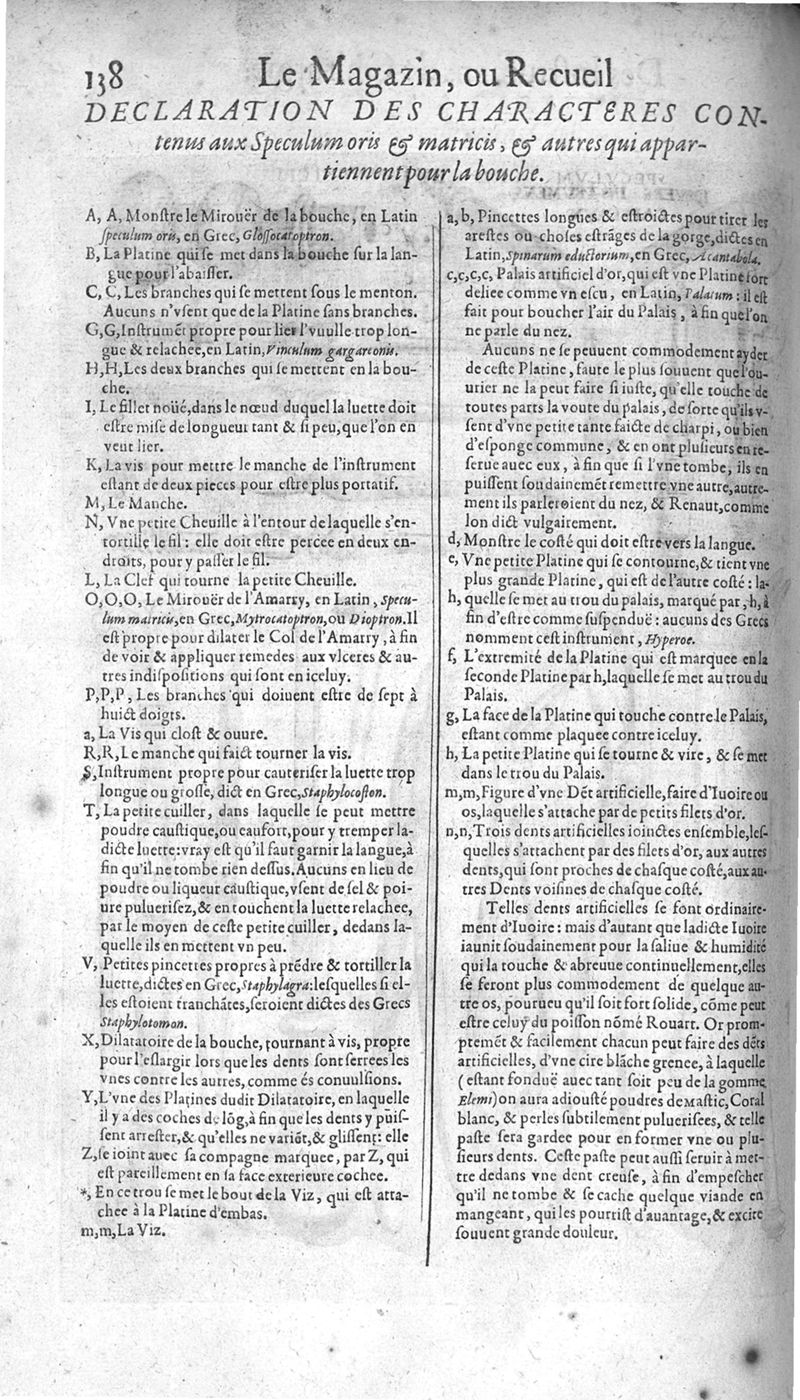 138 Le Magazin, ou Recueil
DECLARATION DES CHARACTERES CON-
tenus aux Speculum oris & matricis, & autres qui appar-
tiennent pour la bouche.
A, A, Monſtre le Mirouër de la bouche, en Latin
ſpeculum oris, en Grec, Gloſſocatoptron.
B, La Platine qui ſe met dans la bouche ſur la lan-
gue pour l'abaiſſer.
C, C, Les branches qui ſe mettent ſous le menton.
Aucuns n'vſent que de la Platine ſans branches.
G, G, Inſtrumēt propre pour lier l'vuulle trop lon-
gue & relachee, en Latin, Vinculum gargareonis.
H, H, Les deux branches qui ſe mettent en la bou-
che.
I, Le fillet noüé, dans le nœud duquel la luette doit
eſtre miſe de longueur tant & ſi peu, que l'on en
veut lier.
K, La vis pour mettre le manche de l'inſtrument
eſtant de deux pieces pour eſtre plus portatif.
M, Le Manche.
N, Vne petite Cheuille à l'entour de laquelle s'en-
tortille le fil : elle doit eſtre percee en deux en-
droits, pour y paſſer le fil.
L, La Clef qui tourne la petite Cheuille.
O, O, O, Le Mirouër de l'Amarry, en Latin, Specu-
lum matricis, en Grec, Mytrocatoptron, ou Dioptron. Il
eſt propre pour dilater le Col de l'Amarry, à fin
de voir & appliquer remedes aux vlceres & au-
tres indiſpoſitions qui ſont en iceluy.
P, P, P, Les branches qui doiuent eſtre de ſept à
huict doigts.
a, La Vis qui cloſt & ouure.
R, R, Le manche qui faict tourner la vis.
S, Inſtrument propre pour cauteriſer la luette trop
longue ou groſſe, dict en Grec, Staphylocoſton.
T, La petite cuiller, dans laquelle ſe peut mettre
poudre cauſtique, ou eaufort, pour y tremper la-
dicte luette: vray eſt qu'il faut garnir la langue, à
fin qu'il ne tombe rien deſſus. Aucuns en lieu de
poudre ou liqueur cauſtique, vſent de ſel & poi-
ure pulueriſez, & en touchent la luette relachee,
par le moyen de ceſte petite cuiller, dedans la-
quelle ils en mettent vn peu.
V, Petites pincettes propres à prēdre & tortiller la
luette, dictes en Grec, Staphylagra: leſquelles ſi el-
les eſtoient tranchātes, ſeroient dictes des Grecs
Staphylotomon.
X, Dilatatoire de la bouche, tournant à vis, propre
pour l'eſlargir lors que les dents ſont ſerrees les
vnes contre les autres, comme és conuulſions.
Y, L'vne des Platines dudit Dilatatoire, en laquelle
il y a des coches de lōg, à fin que les dents y puiſ-
ſent arreſter, & qu'elles ne variēt, & gliſſent: elle
Z, ſe ioint avec ſa compagne marquee, par Z, qui
eſt pareillement en ſa face exterieure cochee.
*, En ce trou ſe met le bout de la Viz, qui eſt atta-
chee à la Platine d'embas.
m, m, La Viz.
a, b, Pincettes longues & eſtroictes pour tirer les
areſtes ou choſes eſtrāges de la gorge, dictes en
Latin, Spinarum eductorium, en Grec, Acantabola.
c, c, c, c, Palais artificiel d'or, qui eſt vne Platine fort
deliee comme vn eſcu, en Latin, Palatum : il eſt
fait pour boucher l'air du Palais, à fin que l'on
ne parle du nez.
Aucuns ne ſe peuuent commodement ayder
de ceſte Platine, faute le plus ſouuent que l'ou-
urier ne la peut faire ſi iuſte, qu'elle touche de
toutes parts la voute du palais, de ſorte qu'ils v-
ſent d'vne petite tante faicte de charpi, ou bien
d'eſponge commune, & en ont pluſieurs en re-
ſerue auec eux, à fin que ſi l'vne tombe, ils en
puiſſent ſoudainemēt remettre vne autre, autre-
ment ils parleroient du nez, & Renaut, comme
lon dict vulgairement.
d, Monſtre le coſté qui doit eſtre vers la langue.
e, Vne petite Platine qui ſe contourne, & tient vne
plus grande Platine, qui eſt de l'autre coſté : la-
h, quelle ſe met au trou du palais, marqué par, h, à
fin d'eſtre comme ſuſpenduë : aucuns des Grecs
nomment ceſt inſtrument, Hyperoe.
f, L'extremité de la Platine qui eſt marquee en la
ſeconde Platine par h, laquelle ſe met au trou du
Palais.
g, La face de la Platine qui touche contre le Palais,
eſtant comme plaquee contre iceluy.
h, La petite Platine qui ſe tourne & vire, & ſe met
dans le trou du Palais.
m, m, Figure d'vne Dēt artificielle, faire d'Iuoire ou
os, laquelle s'attache par de petits filets d'or.
n, n, Trois dents artificielles ioinctes enſemble, leſ-
quelles s'attachent par des filets d'or, aux autres
dents, qui ſont proches de chaſque coſté, aux au-
tres Dents voiſines de chaſque coſté.
Telles dents artificielles ſe font ordinaire-
ment d'Iuoire : mais d'autant que ladicte Iuoire
iaunit ſoudainement pour la ſaliue & humidité
qui la touche & abreuue continuellement, elles
ſe feront plus commodement de quelque au-
tre os, pourueu qu'il ſoit fort ſolide, cōme peut
eſtre celuy du poiſſon nōmé Rouart. Or prom-
ptemēt & facilement chacun peut faire des dēts
artificielles, d'vne cire blāche grenee, à laquelle
(eſtant fonduë auec tant ſoit peu de la gomme
Elemi) on aura adiouſté poudres de Maſtic, Coral
blanc, & perles ſubtilement pulueriſees, & telle
paſte ſera gardee pour en former vne ou plu-
ſieurs dents. Ceſte paſte peut auſſi ſeruir à met-
tre dedans vne dent creuſe, à fin d'empeſcher
qu'il ne tombe & ſe cache quelque viande en
mangeant, qui les pourriſt d'auantage, & excite
ſouuent grande douleur.